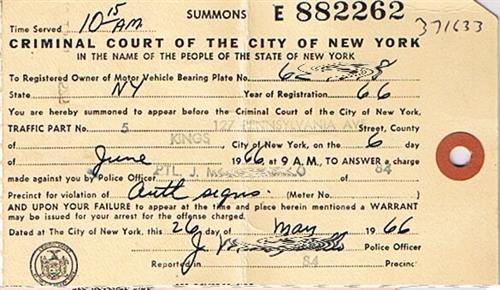 SUMMONS E 882262
Time Served 10 15 AM 371633
CRIMINAL COURT OF THE CITY OF NEW YORK
IN THE NAME OF THE PEOPLE OF THE STATE OF NEW YORK
To Registered Owner of Motor Vehicle Bearing Plate No. 6
State NY Year of Registration 66
You are hereby summoned to appear before the Criminal Court of the City of New York,
TRAFFIC PART No. 5 127 PENNSYLVANIA AVE Street, County
of KINGS, City of New York, on the 6 day
of June 1966 at 9 A.M, TO ANSWER a charge
made against you by Police Officer PTL. J. M O of 84
Precinct for violation of auth signs. (Meter No. )
AND UPON YOUR FAILURE to appear at the time and place herein mentioned a WARRANT
may be issued for your arrest for the offense charged.
Dated at The City of New York, this 26 day of May 1966
J. Police Officer
Reported in 84 Precinc